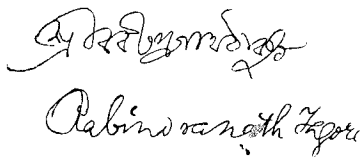 শ্রীরবীন্দ্রনাথ ঠাকুর
Rabindranath Tagore